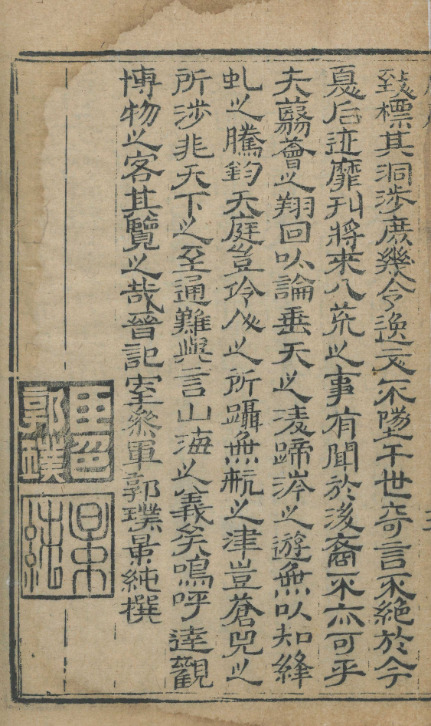 致標其洞涉庶幾令逸文不墜于世奇言不絕於今
夏后迹靡刊將來八荒之事有聞於後裔不亦可乎
夫蘙薈之翔回以論垂天之淩蹄涔之遊無以知絳
虬之騰鈞天庭豈伶人之所躡無航之津豈蒼兕之
所涉非天下之至通難與言山海之義矣嗚呼達觀
博物之客其覽之哉晉記室參軍郭璞景純撰
郭璞
景純